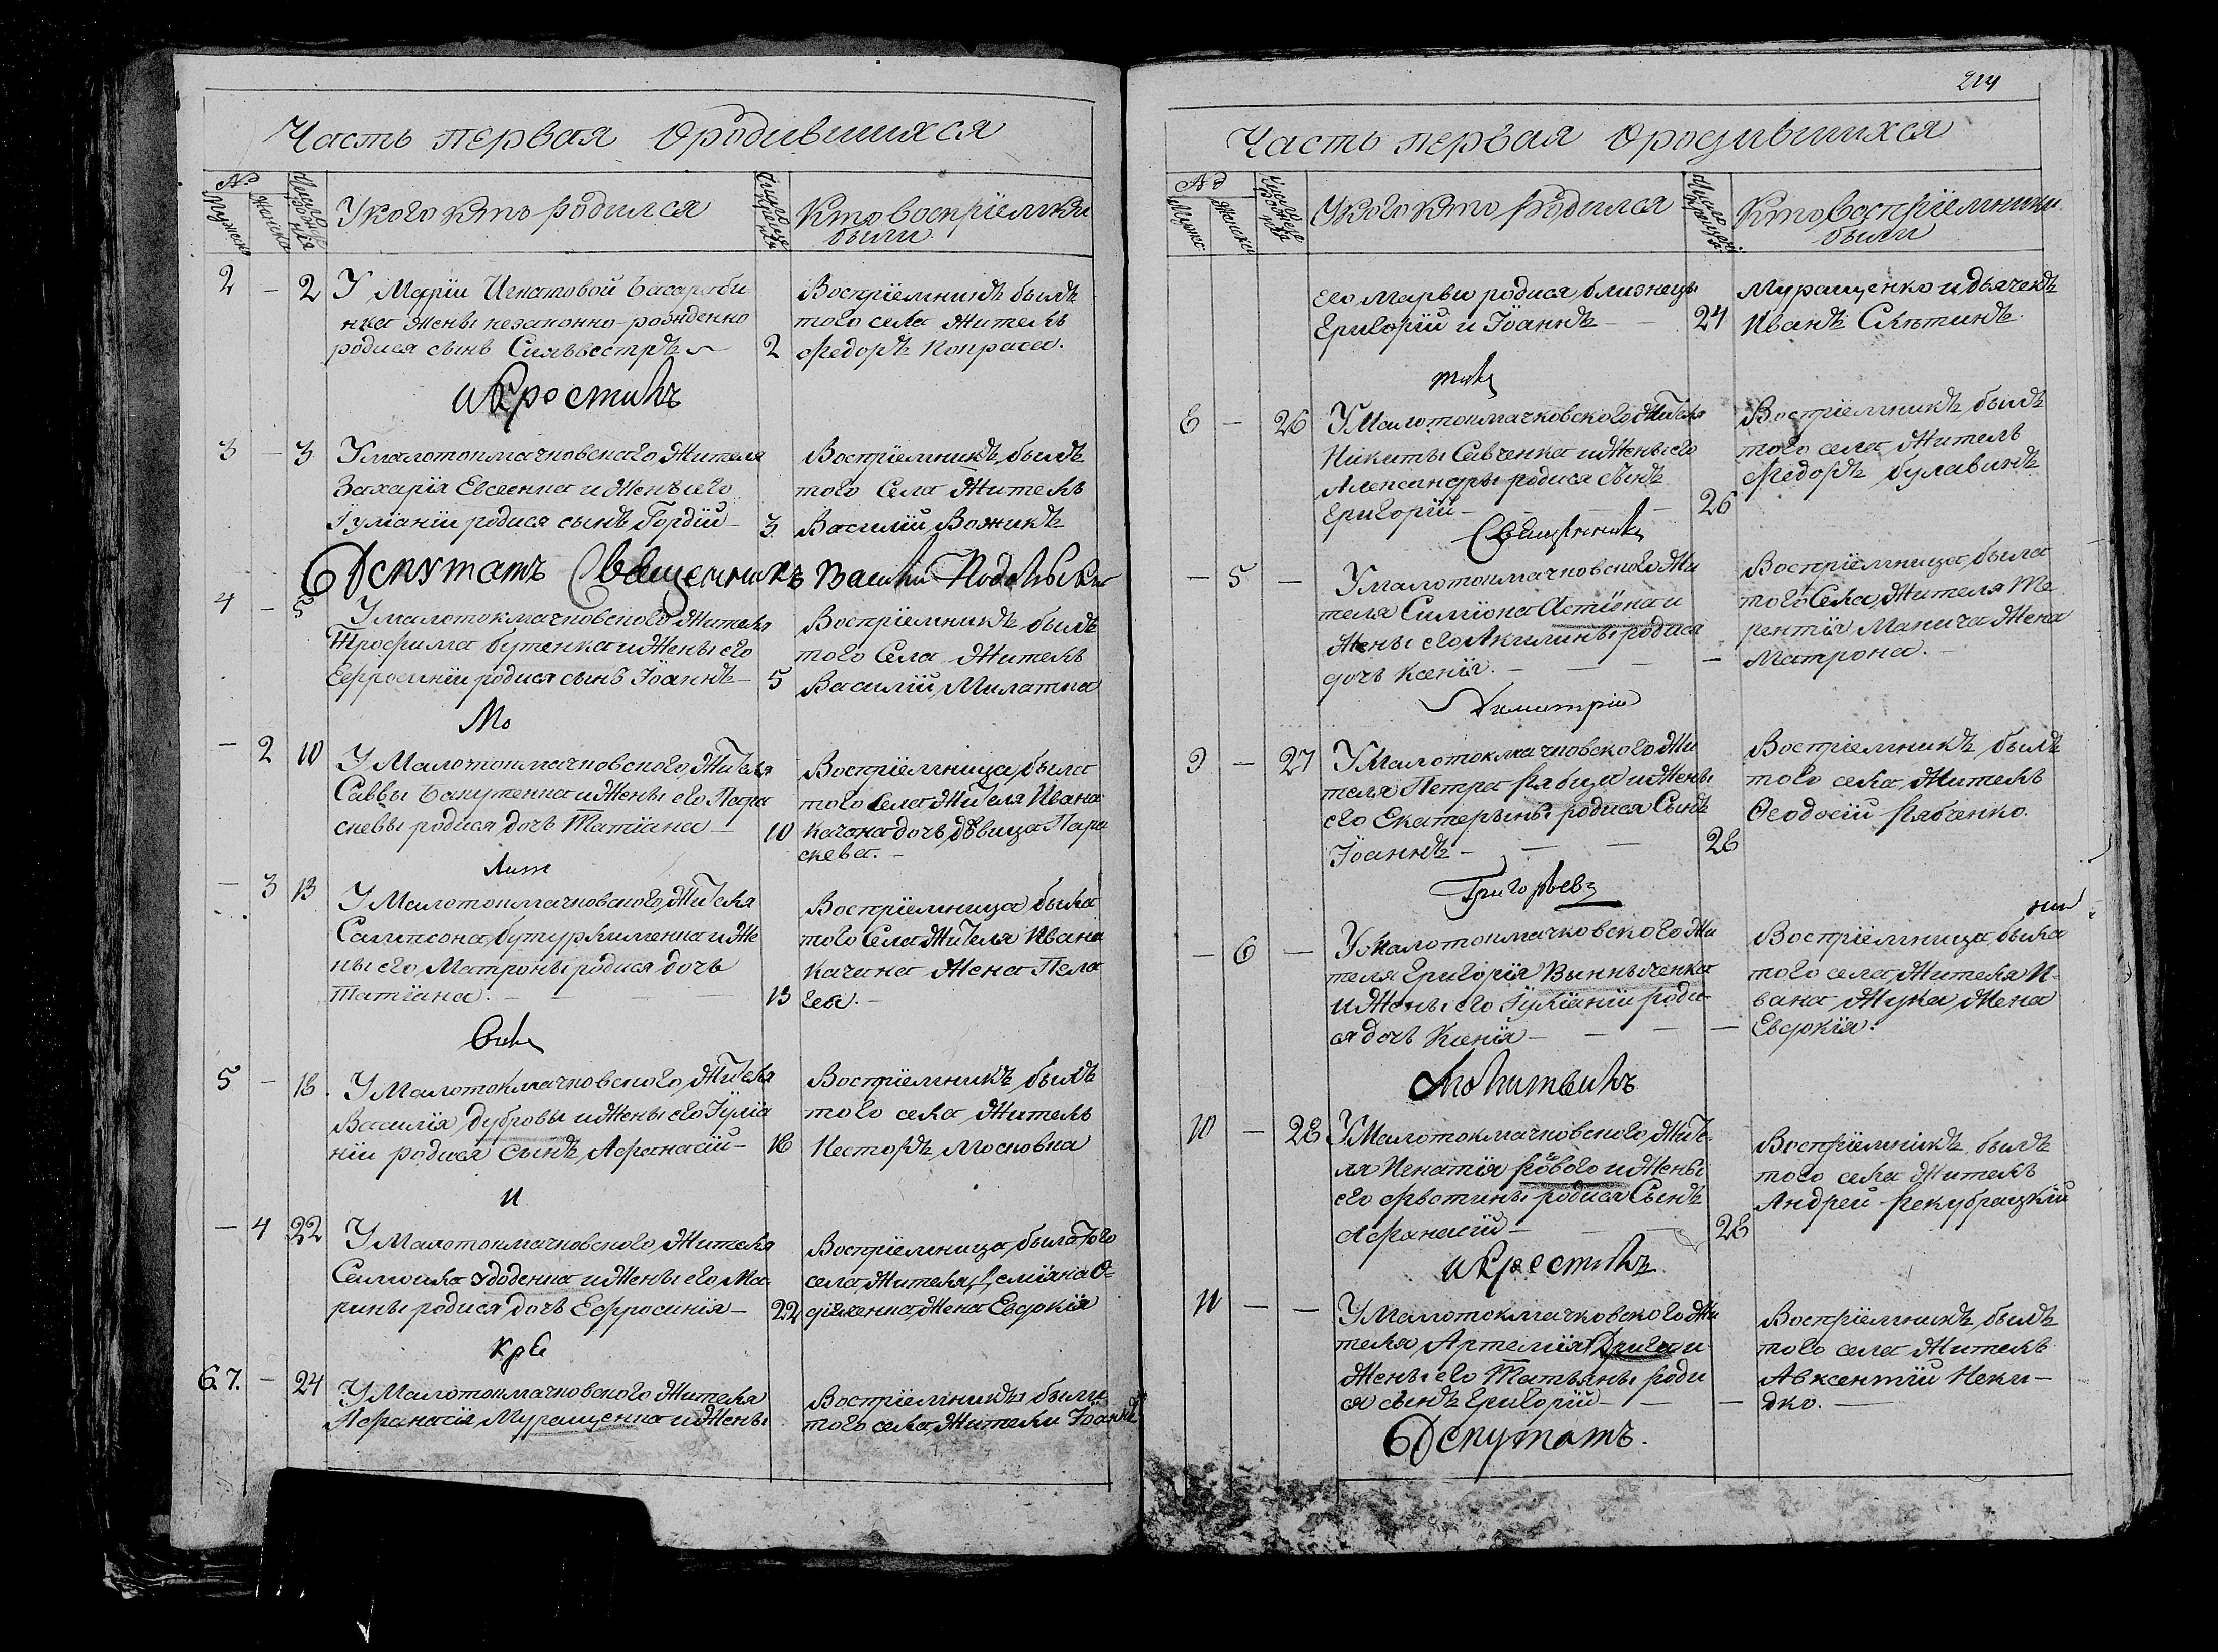 Часть первая о родившихся
№
Мужска
Женска
Число рожденія
У кого кто родился
Число крещенія
Кто воспріемники
были
2 - 2 У Маріи Игнатовой
нка жены незаконно-рожденно
родися сынъ Силвестръ 2
Воспріемникъ былъ
того села житель
Федоръ Попраса.
и Крестилъ
3 - 3 У малотокмачковского жителя
Захарія Евсеенка и жены его
Іуліаніи родися сынъ Гордій - 3.
Воспріемникъ былъ
того села житель
Василій Вожикъ
Депутатъ Священникъ
4 - 5 У малотокмачковского жителя
Трофима Бутенка и жены его
Ефросиніи родися сынъ Іоаннъ - 5
Воспріемникъ былъ
того села житель
Василій Милатка
Мо
- 2 10 У Малотокмачковского жителя
Саввы и жены его Пара
скевы родися дочь Татіана - 10
Воспріемница была
того села жителя Ивана
Качана дочь дѣвица Пара
скева. -
Лит
- 3 13 У Малотокмачковского жителя
Сампсона и же
ны его Матроны родися дочь
Татіана. - 13
Воспріемница была
того села жителя Ивана
Качана жена Пела
гея. -
5 - 18. У Малотокмачковского жителя
Василія Дубровы и жены его Іуліа
ніи родися сынъ Афанасій - 18
Воспріемникъ былъ
того села житель
Несторъ Московка
и
- 4 22 У Малотокмачковского жителя
Самоила и жены его Ма
рины родися дочь Ефросинія - 22
Воспріемница была того
села жителя
жена Евдокія
Кре
6.7. - 24 У Малотокмачковского жителя
Афанасія Муращенка и жены
Воспріемники были
того села жители Іоаннъ
214
Часть первая о родившихся
№
Мужс.
Женска
У кого кто родился
Кто воспріемники
были
его Марфы родися близнецы
Григорій и Іоаннъ - 24
Муращенко и дьячекъ
Иванъ Слѣтинъ.
8 - 26 У Малотокмачковского жителя
Никиты Савченка и жены его
Александры родися сынъ
Григорій - 26
Воспріемникъ былъ
того села житель
Федоръ Булавинъ
Священникъ
- 5 - У малотокмачковского жи
теля Симіона и
жены его Акилины родися
дочь Ксенія. -
Воспріемница была
того села жителя Те
рентія Манича жена
Матрона. -
Димитрій
9 - 27 У Малотокмачковского жи
теля Петра Рябица и жены
его Екатерины родися сынъ
Іоаннъ - 28
Воспріемникъ былъ
того села житель
Феодосій Рябченко.
Григорьевъ
- 6 - У Малотокмачковского жи
теля Григорія Винниченка
и жены его Іуліаніи роди
ся дочь Ксенія -
Воспріемница была
того села жителя И-
вана Жука жена
Евдокія.
Молитвилъ
10 - 28 У Малотокмачковского жите
ля Игнатія и жены
его Фвотины родися сынъ
Афанасій - 28
Воспріемникъ былъ
того села житель
Андрей
и Крестилъ
11 - - У Малотокмачковского жи
теля Артемія Дрига и
жены его Татьяны роди
ся сынъ Григорій -
Воспріемникъ былъ
того села житель
Авксентій
Депутатъ.